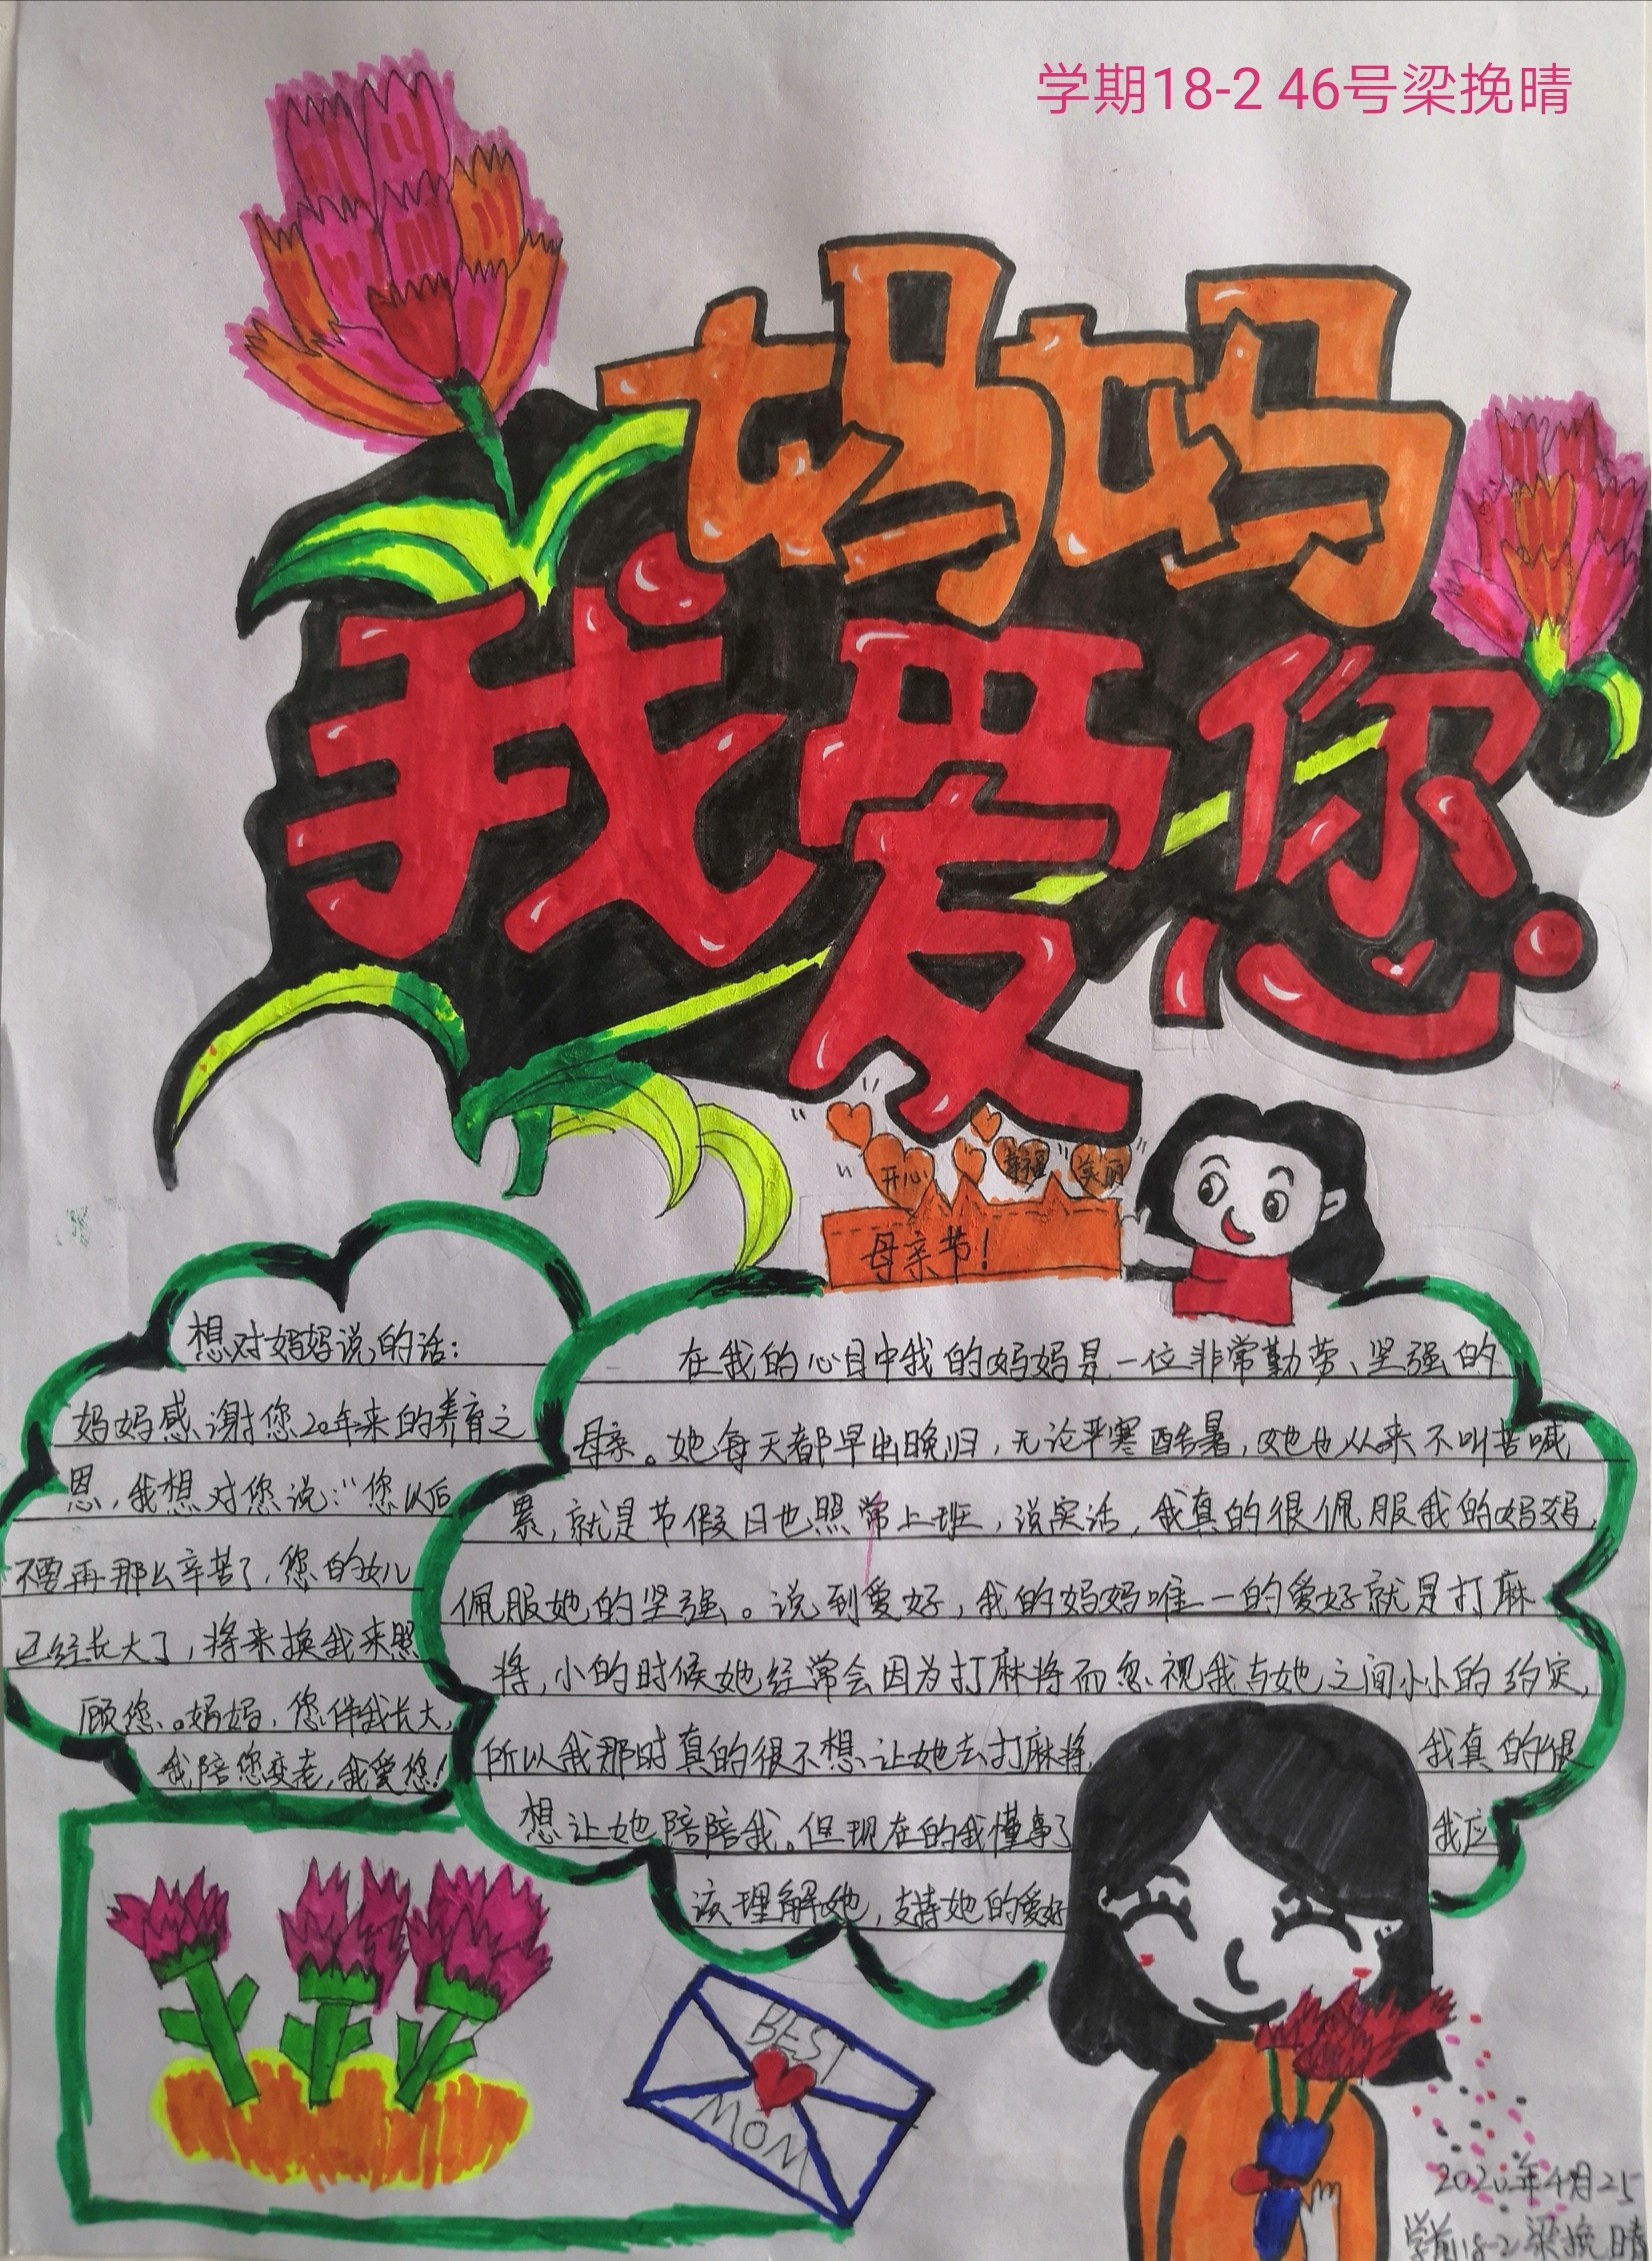 学期18-2 46号梁挽晴
妈妈
我爱您
开心 幸福 美丽
母亲节!
想对妈妈说的话:
妈妈感谢您20年来的养育之
恩,我想对您说:“您以后
不要再那么辛苦了,您的女儿
已经长大了,将来换我来照
顾您。妈妈,您伴我长大,
我陪您变老,我爱您!
在我的心目中我的妈妈是一位非常勤劳、坚强的
母亲。她每天都早出晚归,无论严寒酷暑,她也从来不叫苦喊
累,就是节假日也照常上班,说实话,我真的很佩服我的妈妈,
佩服她的坚强。说到爱好,我的妈妈唯一的爱好就是打麻
将,小的时候她经常会因为打麻将而忽视我与她之间小小的约定,
所以我那时真的很不想让她去打麻将, 我真的很
想让她陪陪我。但现在的我懂事了 我应
该理解她,支持她的爱好
BEST
MOM
2020年4月25
学前18-2梁挽晴